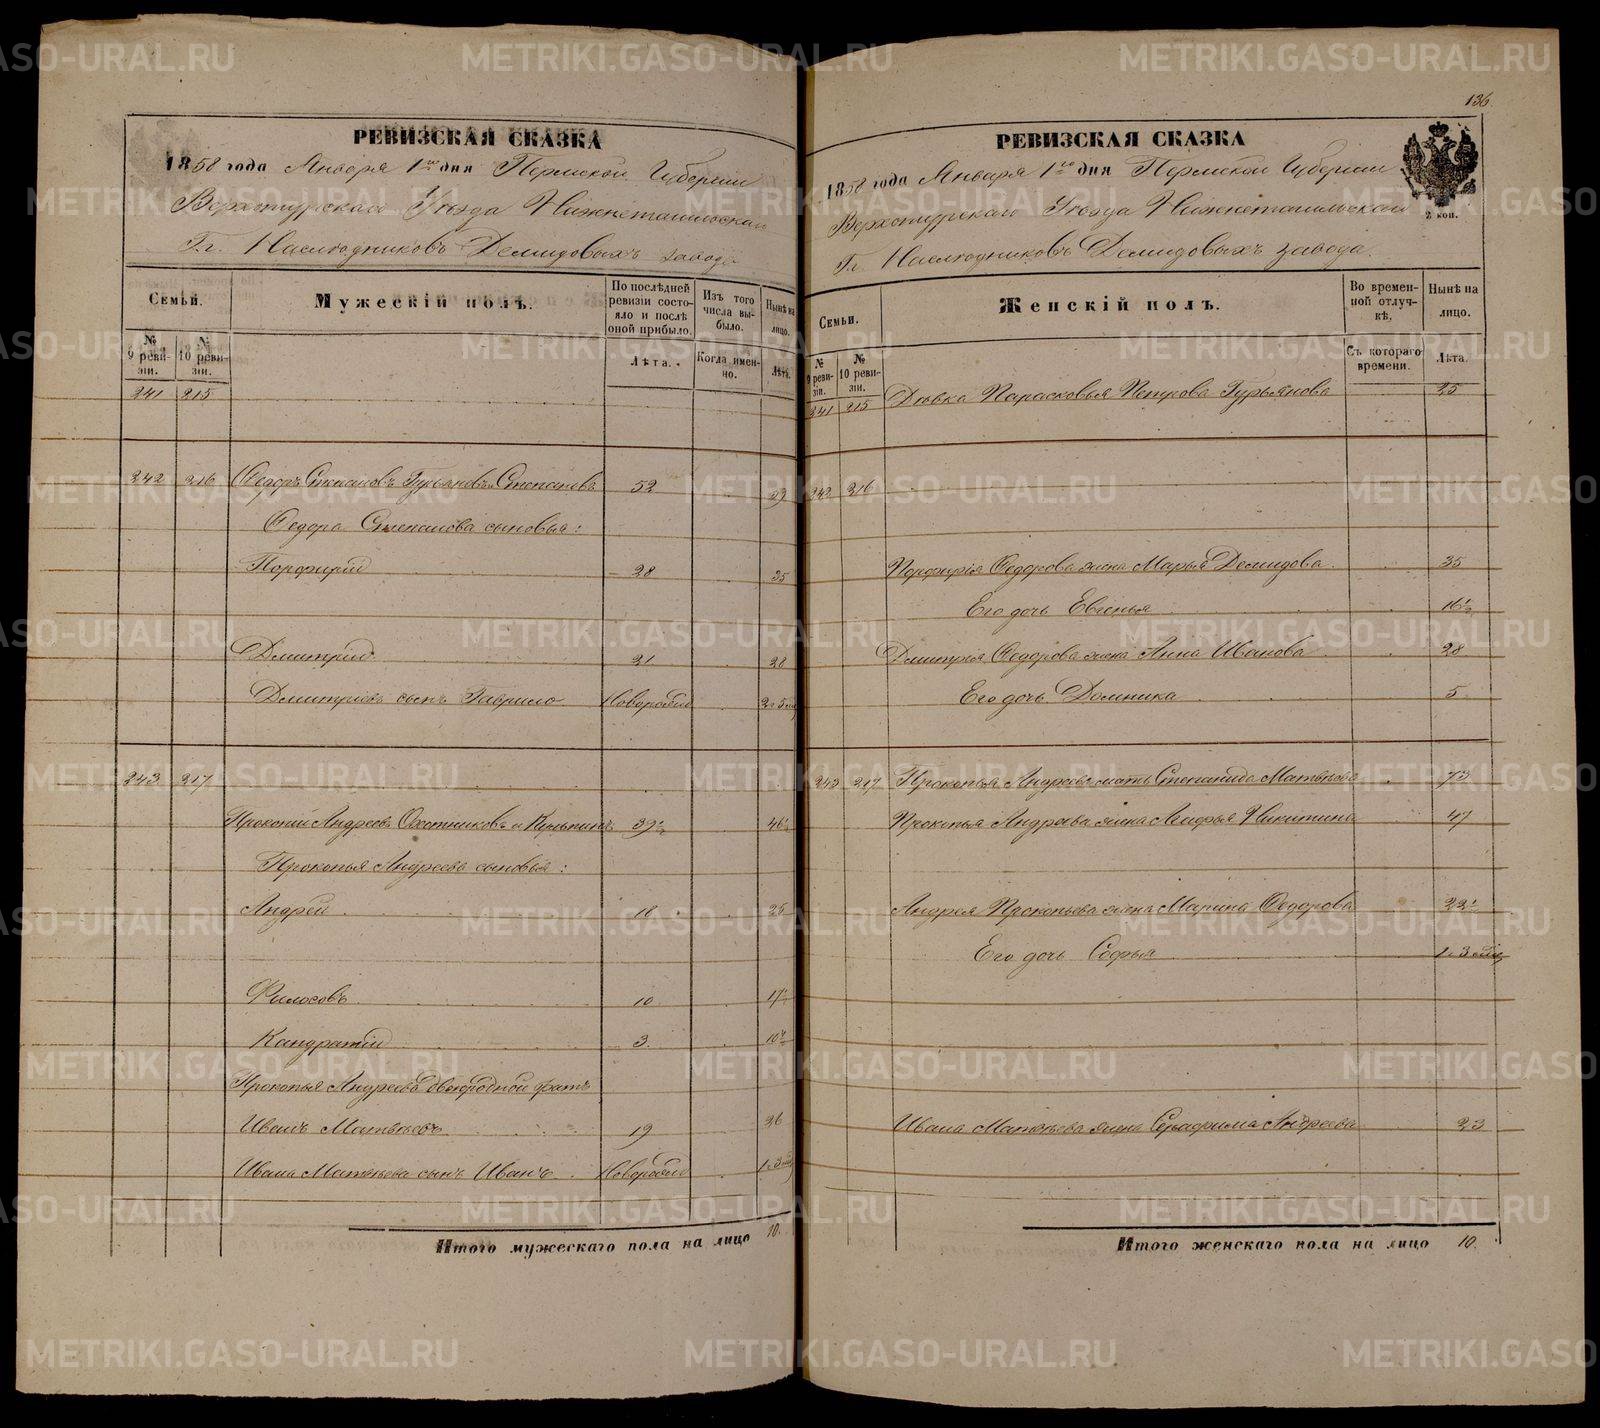 РЕВИЗСКАЯ СКАЗКА
1858 года Января 1го дня Пермской Губернии
Верхотурскаго Уѣзда Нижнетагильскаго
Гг. Наслѣдниковъ Демидовыхъ завода
Семьи.
№ 9 ревизіи.
№ 10 ревизіи.
Мужескій полъ.
По послѣдней ревизіи состояло и послѣ оной прибыло.
Изъ того числа выбыло.
Нынѣ на лицо.
Лѣта.
Когда именно.
Лѣта.
241 215
242 216 Федоръ Степановъ Гурьяновъ и Степановъ 52 59
Федора Степанова сыновья:
Порфирій 28 35
Дмитрій 21 28
Дмитріевъ сынъ Гаврило Новорожд
243 217
Прокопій Андреевъ Охотниковъ и 39½ 46½
Прокопья Андреева сыновья:
Андрей 18 25
Филосовъ 10 17
Кандратій 3 10½
Прокопья Андреева двоюродной братъ
Иванъ Матвѣевъ 19 26
Ивана Матвѣева сынъ Иванъ Новорожд
Итого мужескаго пола на лицо 10.
136
РЕВИЗСКАЯ СКАЗКА
1858 года Января 1го дня Пермской Губерніи
Верхотурскаго Уѣзда Нижнетагильскаго
Гг. Наслѣдниковъ Демидовыхъ завода
2 коп.
Семьи.
№ 9 ревизіи.
№ 10 ревизіи.
Женскій полъ.
Во временной отлучкѣ.
Нынѣ на лицо.
Съ котораго времени.
Лѣта.
241 215 Дѣвка Парасковья Петрова Гурьянова 25
242 216
Порфирія Федорова жена Марья Демидова 35
Его дочь Евгенья 16½
Дмитрія Федорова жена Анна Иванова 28
Его дочь Домника 5
243 217 Прокопья Андреева мать Степанида Матвѣева 73
Прокопья Андреева жена Марья Никитина 47
Андрея Прокопьева жена Марина Федорова 22½
Его дочь Софья
Ивана Матвѣева жена Серафима Андреева 23
Итого женскаго пола на лицо 10.
METRIKI.GASO-URAL.RU